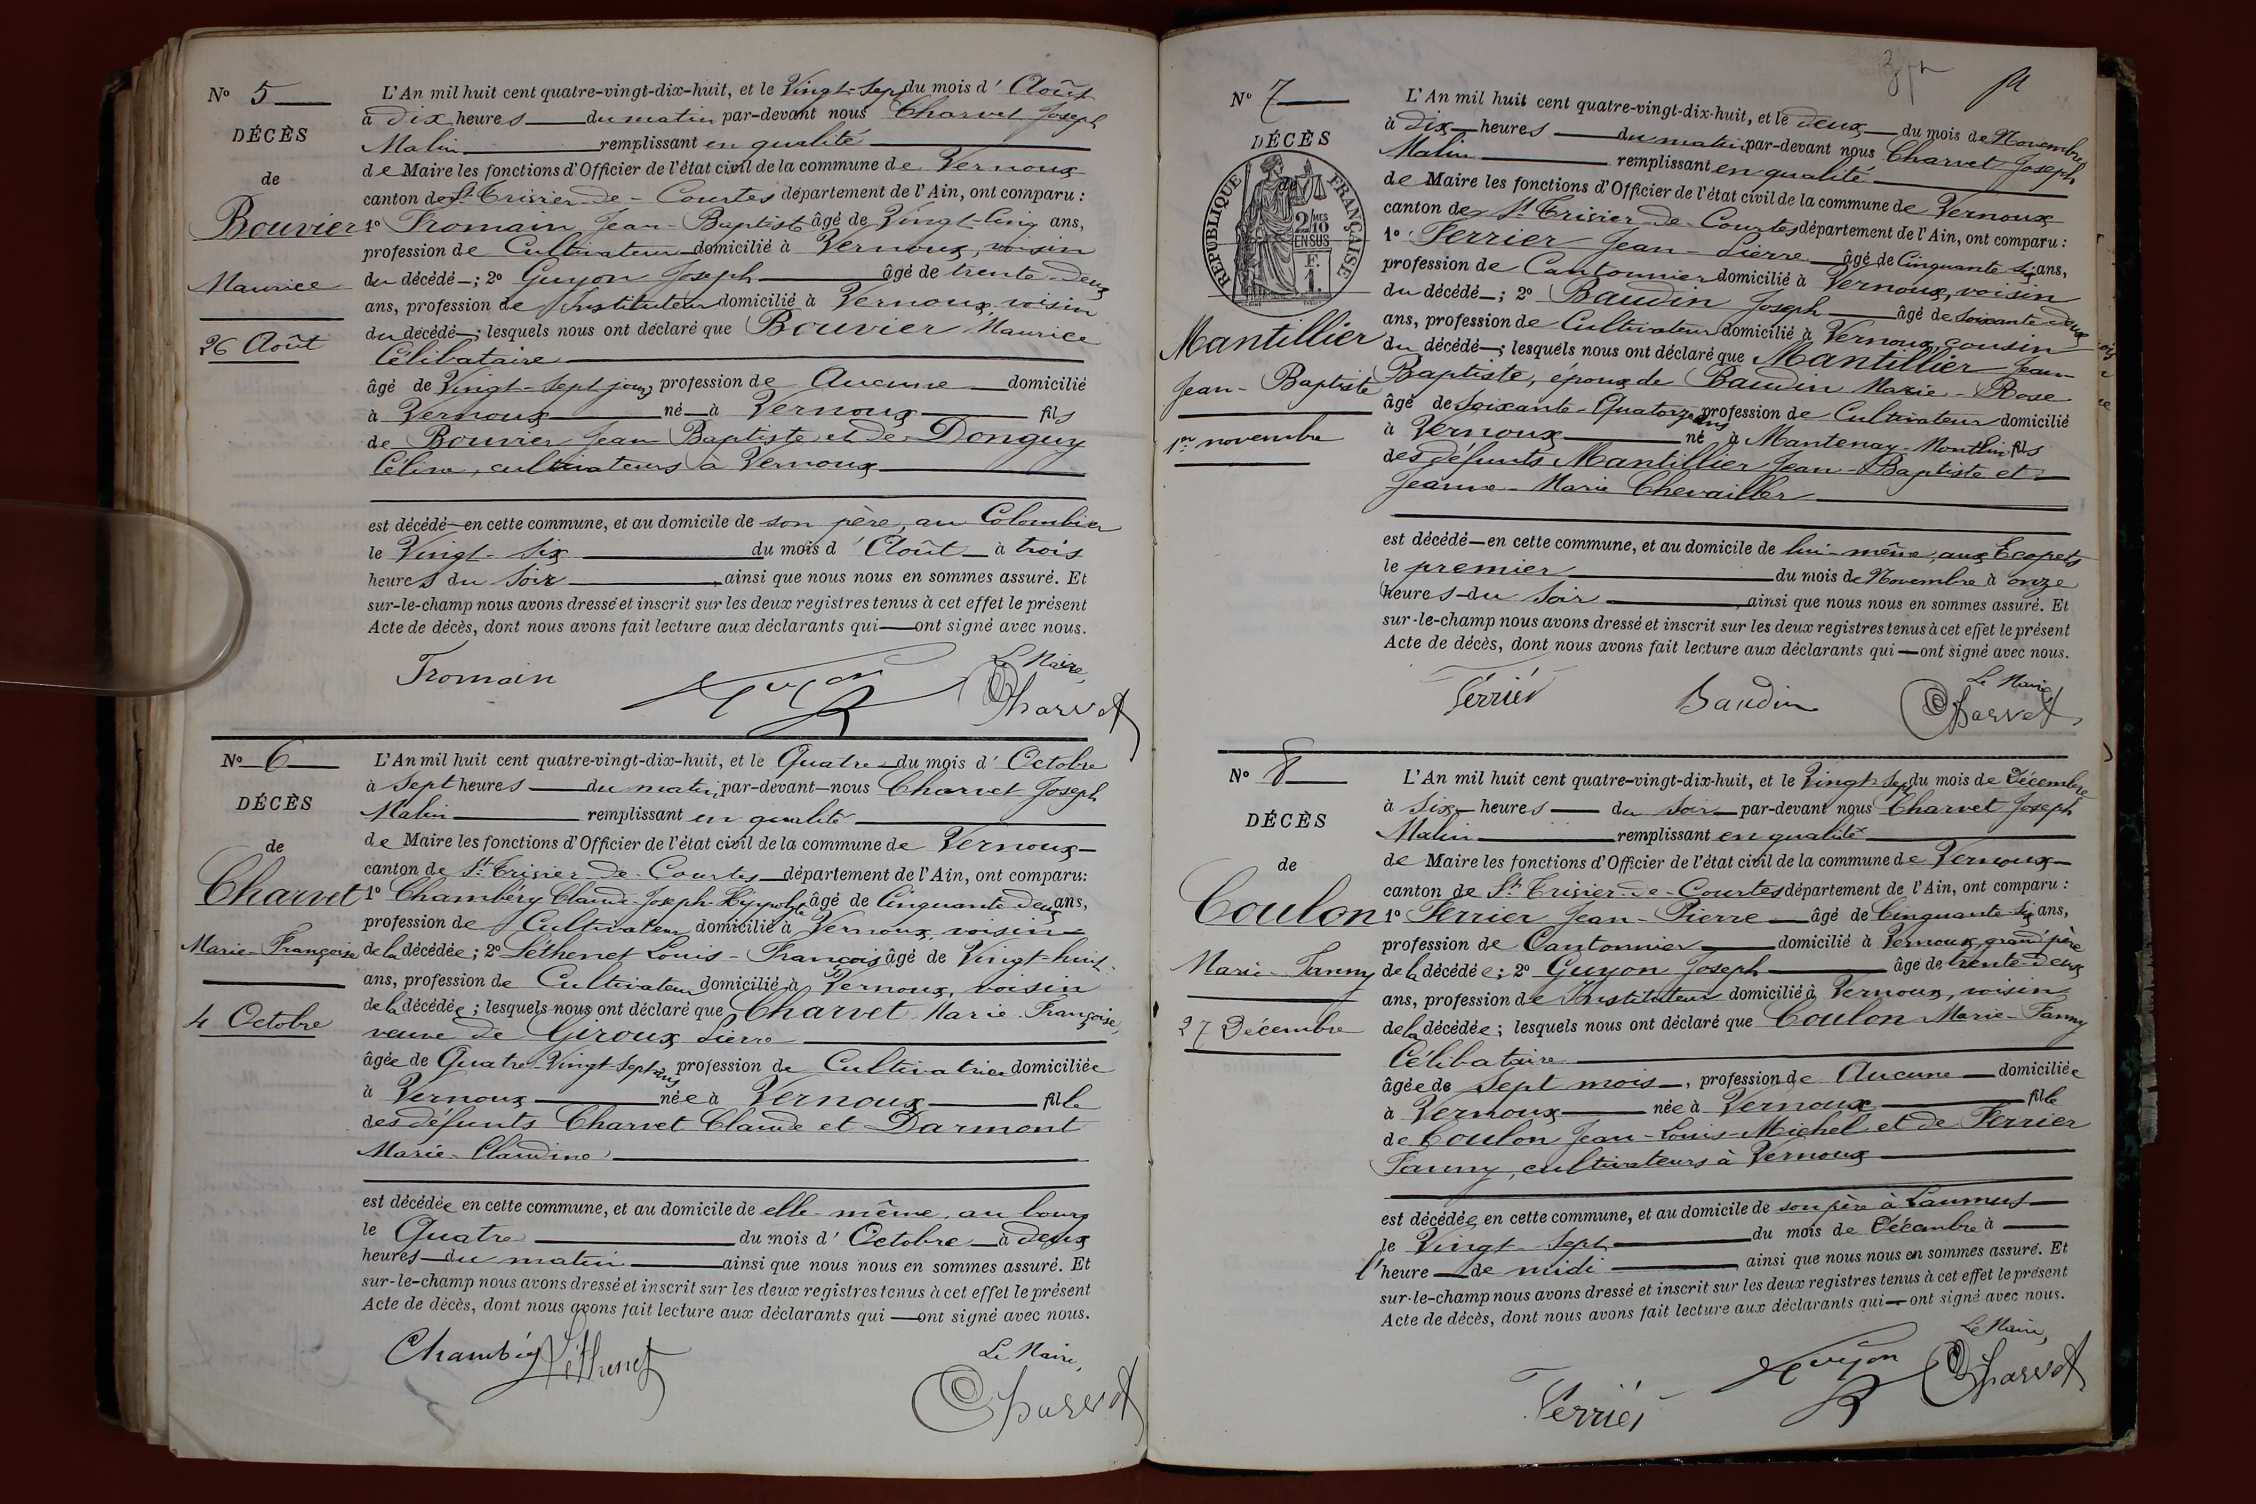 No 5
DÉCÈS
de
Bouvier
Maurice
26 Août
L'An mil huit cent quatre-vingt-dix-huit, et le Vingt-Sept du mois d' Août
à dix heures du matin par-devant nous Charvet Joseph
Malin remplissant en qualité
de Maire les fonctions d'Officier de l'état civil de la commune de Vernoux
canton de St Trivier-de-Courtes département de l'Ain, ont comparu :
1o Fromain Jean-Baptiste âgé de Vingt-Cinq ans,
profession de Cultivateur domicilié à Vernoux, voisin
du décédé ; 2o Guyon Joseph âgé de trente-deux
ans, profession de Instituteur domicilié à Vernoux, voisin
du décédé ; lesquels nous ont déclaré que Bouvier Maurice
Célibataire
âgé de Vingt-Sept jours, profession de Aucune domicilié
à Vernoux né à Vernoux fils
de Bouvier Jean Baptiste et de Donguy
Céline, cultivateurs à Vernoux
est décédé en cette commune, et au domicile de son père, au Colombier
le Vingt-Six du mois d' Août à trois
heures du Soir ainsi que nous nous en sommes assuré. Et
sur-le-champ nous avons dressé et inscrit sur les deux registres tenus à cet effet le présent
Acte de décès, dont nous avons fait lecture aux déclarants qui ont signé avec nous.
Le Maire,
Fromain Guyon Charvet
No 6
DÉCÈS
de
Charvet
Marie-Françoise
4 Octobre
L'An mil huit cent quatre-vingt-dix-huit, et le Quatre du mois d' Octobre
à Sept heures du matin, par-devant nous Charvet Joseph
Malin remplissant en qualité
de Maire les fonctions d'Officier de l'état civil de la commune de Vernoux
canton de St Trivier-de-Courtes département de l'Ain, ont comparu :
1o Chambéry Claude-Joseph-Hyppolyte âgé de Cinquante deux ans,
profession de Cultivateur domicilié à Vernoux, voisin
de la décédée ; 2o Léthenet Louis-François âgé de Vingt-huit
ans, profession de Cultivateur domicilié à Vernoux, voisin
de la décédée ; lesquels nous ont déclaré que Charvet Marie Françoise,
veuve de Giroux Pierre
âgée de Quatre-Vingt-Sept ans, profession de Cultivatrice domiciliée
à Vernoux née à Vernoux fille
des défunts Charvet Claude et Darmont
Marie-Claudine
est décédée en cette commune, et au domicile de elle-même, au bourg
le Quatre du mois d' Octobre à deux
heures du matin ainsi que nous nous en sommes assuré. Et
sur-le-champ nous avons dressé et inscrit sur les deux registres tenus à cet effet le présent
Acte de décès, dont nous avons fait lecture aux déclarants qui ont signé avec nous.
Le Maire,
Chambéry Léthenet Charvet
No 7
DÉCÈS
de
RÉPUBLIQUE FRANÇAISE
2/10MES
EN SUS
F.
1.
Mantillier
Jean-Baptiste
1er novembre
L'An mil huit cent quatre-vingt-dix-huit, et le deux du mois de Novembre
à dix heures du matin, par-devant nous Charvet Joseph
Malin remplissant en qualité
de Maire les fonctions d'Officier de l'état civil de la commune de Vernoux
canton de St Trivier-de-Courtes département de l'Ain, ont comparu :
1o Ferrier Jean-Pierre âgé de Cinquante six ans,
profession de Cantonnier domicilié à Vernoux, voisin
du décédé ; 2o Baudin Joseph âgé de Soixante-deux
ans, profession de Cultivateur domicilié à Vernoux, cousin
du décédé ; lesquels nous ont déclaré que Mantillier Jean-
Baptiste, époux de Baudin Marie-Rose
âgé de Soixante-Quatorze ans profession de Cultivateur domicilié
à Vernoux né à Mantenay-Montlin fils
des défunts Mantillier Jean-Baptiste et
Jeanne-Marie Chevailler
est décédé en cette commune, et au domicile de lui-même, aux Ecopets
le premier du mois de Novembre à onze
heures du Soir ainsi que nous nous en sommes assuré. Et
sur-le-champ nous avons dressé et inscrit sur les deux registres tenus à cet effet le présent
Acte de décès, dont nous avons fait lecture aux déclarants qui ont signé avec nous.
Le Maire
Ferrier Baudin Charvet
No 8
DÉCÈS
de
Coulon
Marie-Fanny
27 Décembre
L'An mil huit cent quatre-vingt-dix-huit, et le Vingt-Sept du mois de Décembre
à Six heures du Soir par-devant nous Charvet Joseph
Malin remplissant en qualité
de Maire les fonctions d'Officier de l'état civil de la commune de Vernoux
canton de St Trivier-de-Courtes département de l'Ain, ont comparu :
1o Ferrier Jean-Pierre âgé de Cinquante-six ans,
profession de Cantonnier domicilié à Vernoux, grand'père
de la décédée ; 2o Guyon Joseph âgé de trente-deux
ans, profession de Instituteur domicilié à Vernoux, voisin
de la décédée ; lesquels nous ont déclaré que Coulon Marie-Fanny
Célibataire
âgée de Sept mois, profession de Aucune domiciliée
à Vernoux née à Vernoux fille
de Coulon Jean-Louis-Michel et de Ferrier
Fanny, cultivateurs à Vernoux
est décédée en cette commune, et au domicile de son père à
le Vingt-Sept du mois de Décembre à
l'heure de midi ainsi que nous nous en sommes assuré. Et
sur-le-champ nous avons dressé et inscrit sur les deux registres tenus à cet effet le présent
Acte de décès, dont nous avons fait lecture aux déclarants qui ont signé avec nous.
Le Maire,
Ferrier Guyon Charvet